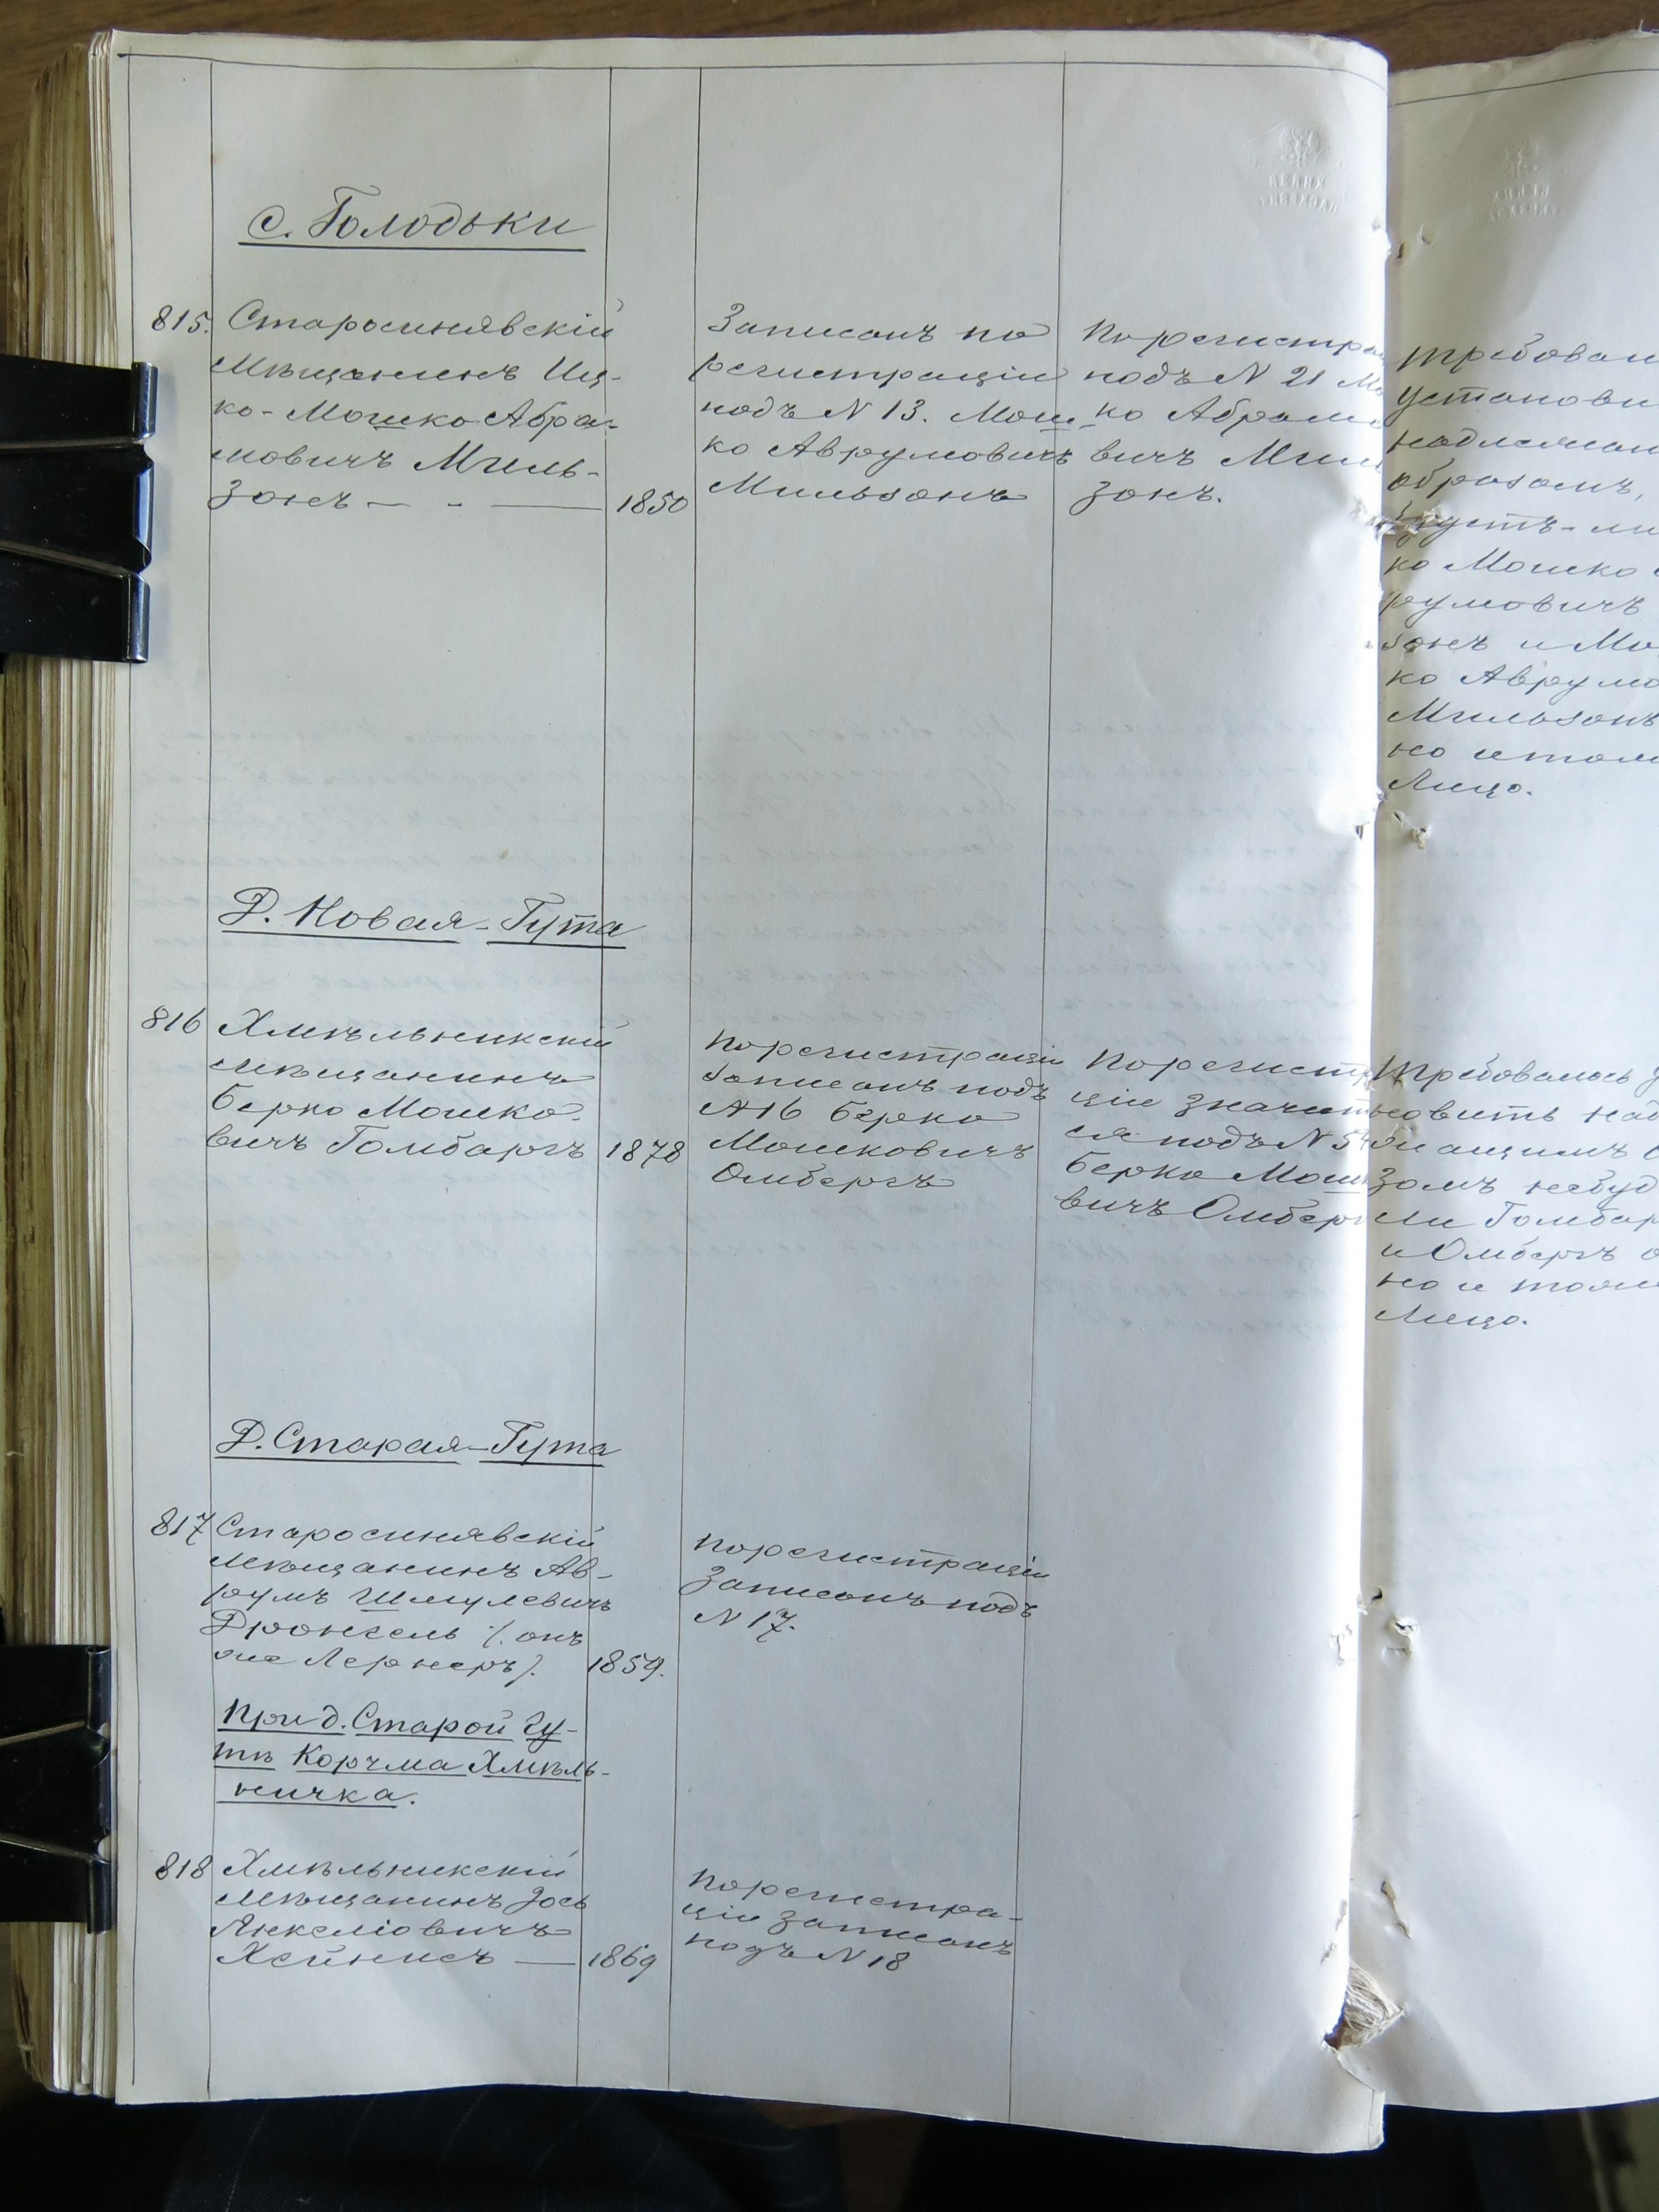 с. Голодьки
815. Старосинявскій
Мѣщанинъ Иц-
ко-Мошко Абра-
мовичъ Миль-
зонъ — - — 1850
Записанъ по
регистраціи
подъ N 13. Мош-
ко Аврумовичъ
Мильзонъ
По регистра
подъ N 21 Мо
ко Абрамо
вичъ Мил
зонъ.
требован
установи
надлежащ
образомъ,
ко Мошко
румовичъ
зонъ и Мо
ко Аврумо
Мильзонъ
но и тоже
Лицо.
Д. Новая-Гута
816 Хмѣльникскій
мѣщанинъ
Берко Мошко-
вичъ Гомбаргъ 1878
По регистраціи
записанъ подъ
N 16 Берко
Мошковичъ
Омбергъ
По регистр
ціи значит
ся подъ N 54
Берко Мош
вичъ Омберг
Требовалось у
новить над
жащимъ о
зомъ небуд
ли Гомбар
и Омбергъ о
но и тоже
Лицо.
Д. Старая-Гута
817 Старосинявскій
мѣщанинъ Ав-
румъ Шмулевичъ
Дронгель /. онъ
же Лернеръ/. 1859.
По регистраціи
Записанъ подъ
N 17.
При д. Старой Гу-
тѣ Корчма Хмѣль-
ничка.
818 Хмѣльникскій
мѣщанинъ Іось
Янкеліовичъ
Хейнисъ — 1869
По регистра-
ціи записанъ
подъ N 18